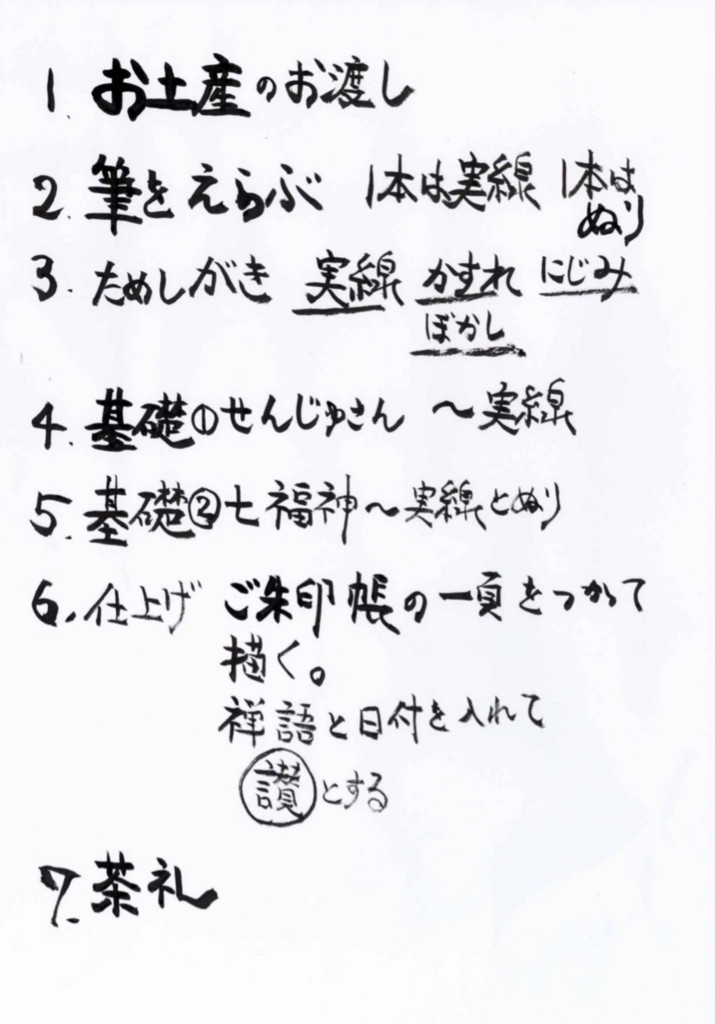 1. お土産のお渡し
2. 筆をえらぶ 1本は実線 1本は
ぬり
3. ためしがき 実線 かすれ にじみ
ぼかし
4. 基礎①せんじゅさん 〜実線
5. 基礎②七福神〜実線とぬり
6. 仕上げ ご朱印帳の一頁をつかって
描く。
禅語と日付を入れて
讃とする
7. 茶礼